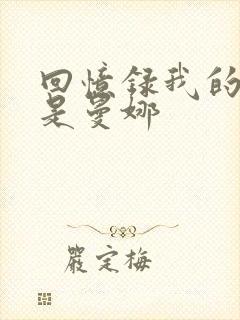 回憶録我的
是曼娜
嚴定梅